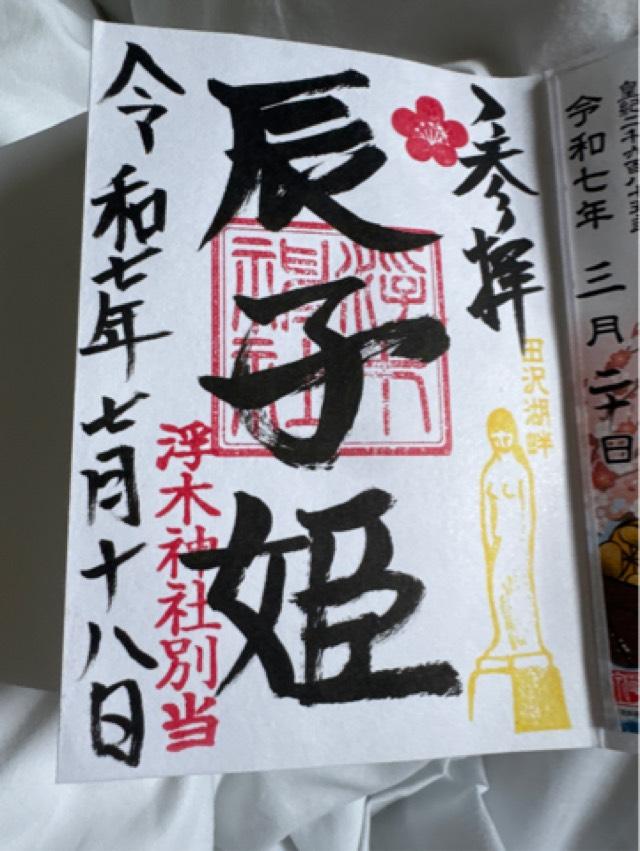 皇紀二千六百八十五年
令和七年 三月二十日
参拝
田沢湖畔
辰子姫
浮木神社別当
令和七年七月十八日